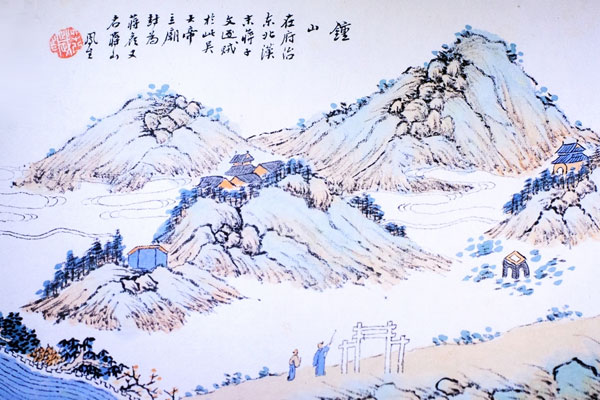 鐘
山
在府治
東北漢
末蔣子
文逐賊
於此吳
大帝
立廟
封為
蔣侯又
名蔣山